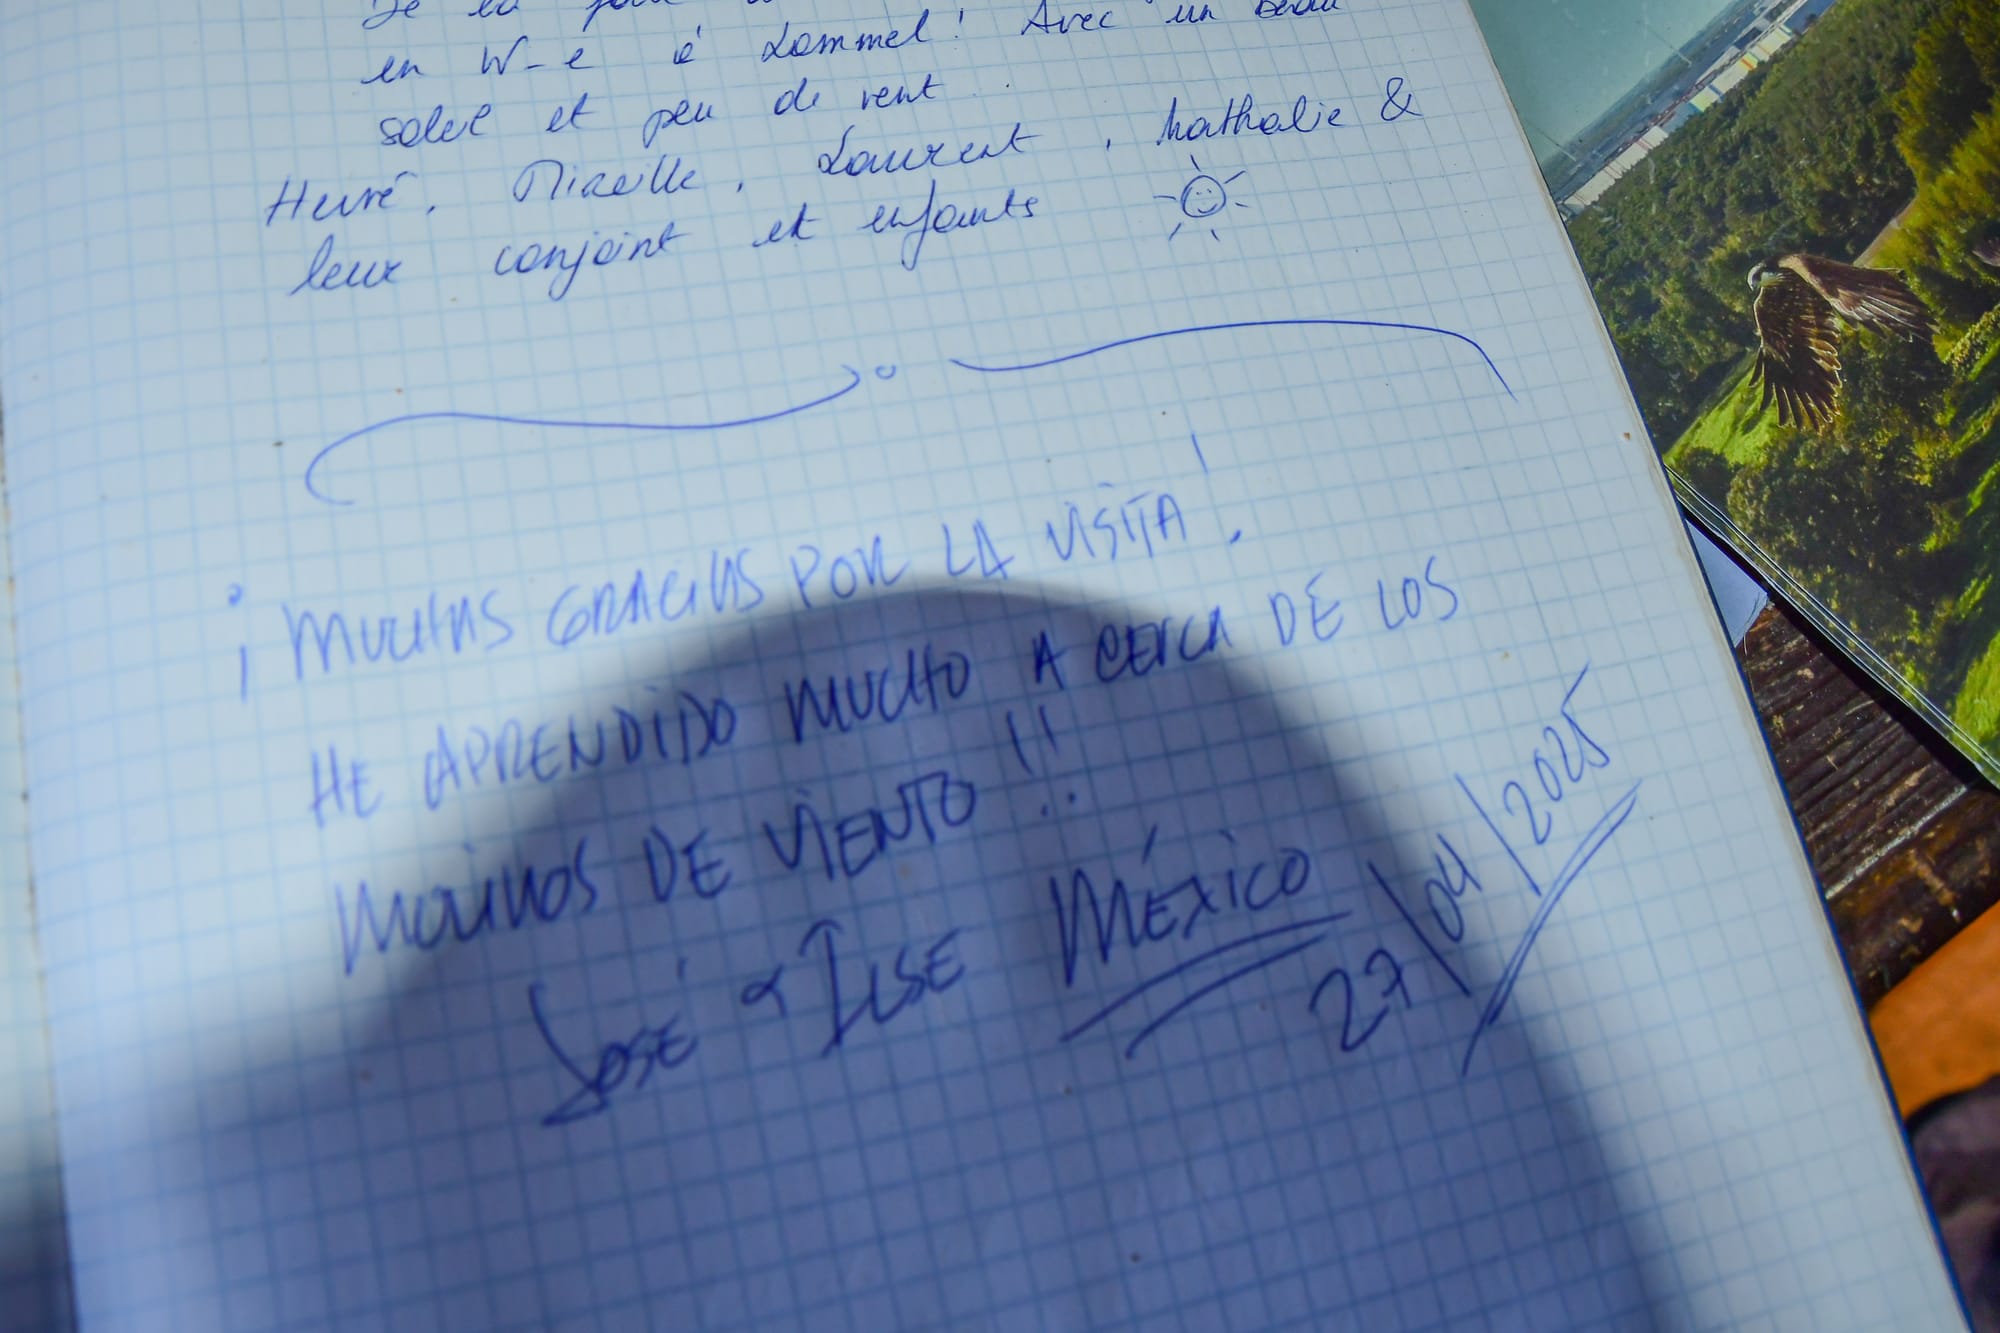 en W-e à Lommel! Avec un beau
soleil et peu de vent.
Hervé, Mireille, Laurent, Nathalie &
leur conjoint et enfants
¡MUCHAS GRACIAS POR LA VISITA!
HE APRENDIDO MUCHO A CERCA DE LOS
MOLINOS DE VIENTO!!
José & ILSE MÉXICO 27/04/2025